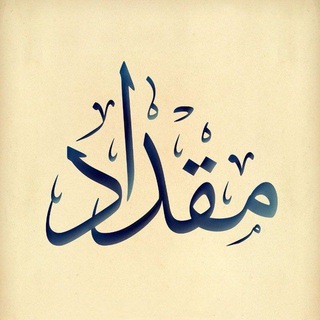 مقداد